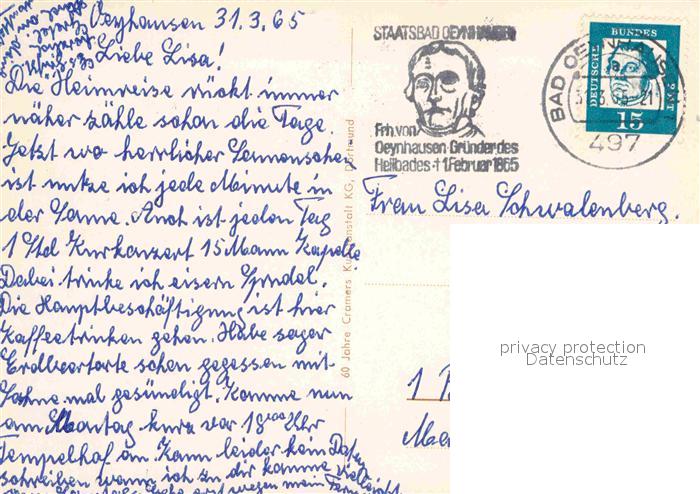 Oeyhausen 31.3.65
Liebe Lisa!
Die Heimreise rückt immer
näher zähle schon die Tage.
Jetzt wo herrlicher Sonnenschein
ist nutze ich jede Minute in
der Sonne. Auch ist jeden Tag
1 Std Kurkonzert 15 Mann Kapelle
Dabei trinke ich eisern Sprudel.
Die Hauptbeschäftigung ist hier
Kaffeetrinken gehen. Habe sogar
Erdbeertorte schon gegessen mit
Sahne mal gesündigt. Komme nun
am Montag kurz vor 18 00 Uhr
Tempelhof an. Kann leider kein Datum
schreiben wann ich zu dir komme vielleicht
60 Jahre Cramers Kunstanstalt KG, Dortmund
STAATSBAD OEYNHAUSEN
Frh. von
Oeynhausen Gründer des
Heilbades † 1. Februar 1865
BAD OEYNHAUSEN
497
DEUTSCHE BUNDESPOST
15
Frau Lisa Schwalenberg.
1
privacy protection
Datenschutz